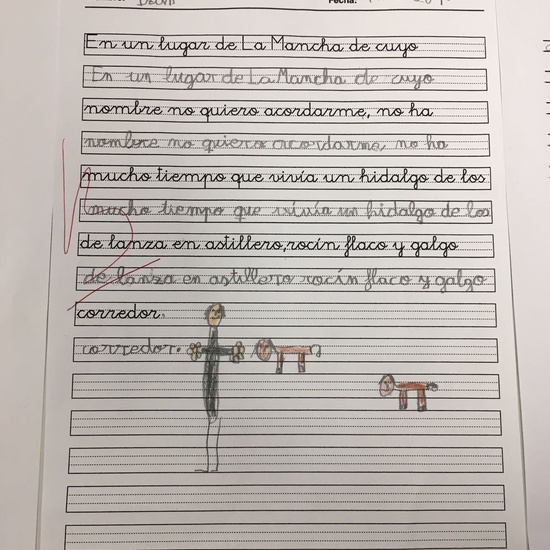 Fecha:
En un lugar de La Mancha de cuyo
En un lugar de La Mancha de cuyo
nombre no quiero acordarme, no ha
nombre no quiero acordarme, no ha
mucho tiempo que vivía un hidalgo de los
mucho tiempo que vivía un hidalgo de los
de lanza en astillero, rocín flaco y galgo
de lanza en astillero rocín flaco y galgo
corredor.
corredor.